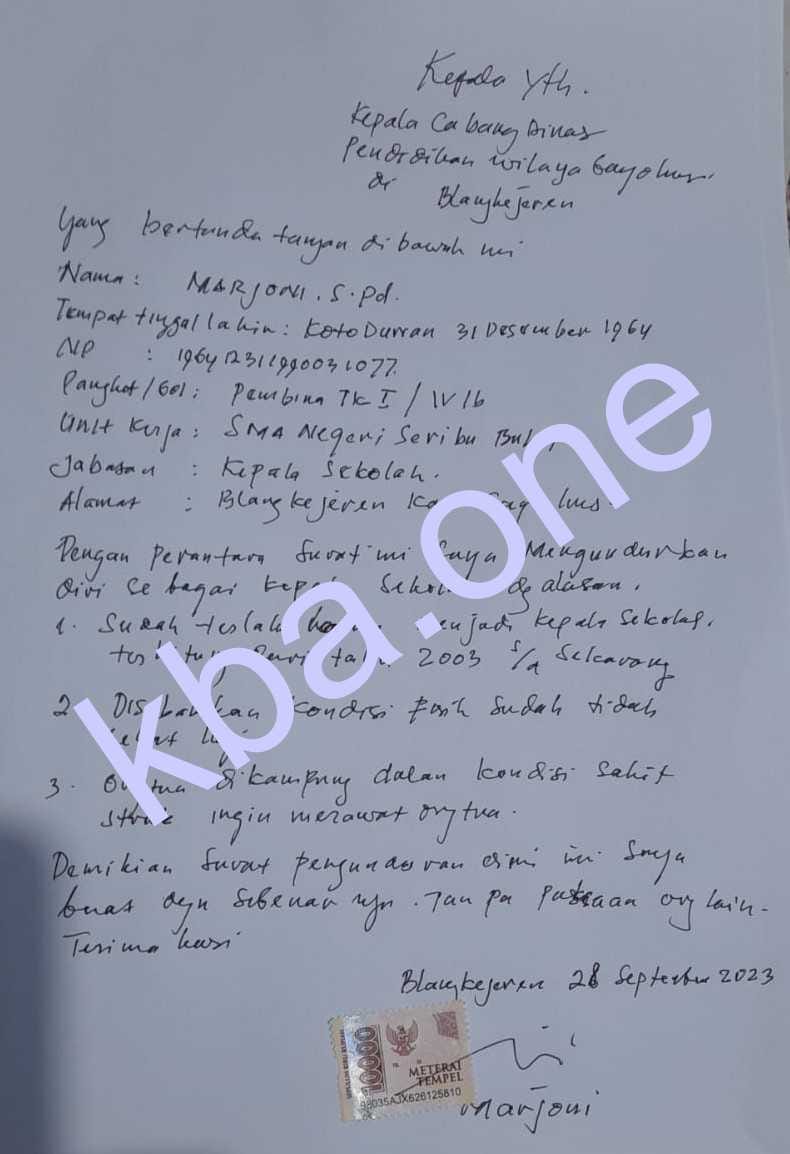 Kepada Yth.
Kepala Cabang Dinas
Pendidikan wilaya Gayolues.
di Blangkejeren
Yang bertanda tangan di bawah ini
Nama : MARJONI. S.Pd.
Tempat tinggal lahir : Koto Durian 31 Desember 1964
NIP : 196412311990031077.
Pangkat/Gol : Pembina TK I / IV/b
Unit Kerja : SMA Negeri Seribu
Jabatan : Kepala Sekolah.
Alamat : Blangkejeren
Dengan perantara surat ini saya Mengundurkan
diri sebagai Kepala Sekolah dg alasan.
1. Sudah menjadi Kepala Sekolah.
terhitung dari 2003 s/d Sekarang
2. Disebabkan kondisi fisik sudah tidak
3. Orgtua dikampung dalan kondisi sakit
stroke ingin merawat orgtua.
Demikian Surat pengunduran diri ini saya
buat dgn sebenarnya. Tanpa paksaan org lain.
Terima kasi
Blangkejeren 28 September 2023
10000
METERAI
TEMPEL
98035AJX626125610
Marjoni
kba.one